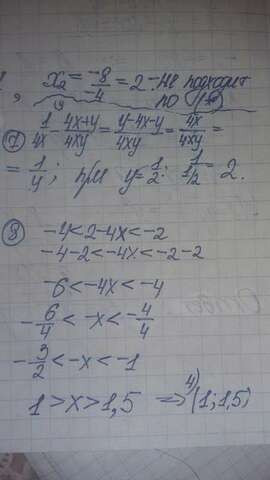 x₂ = -8/-4 = 2 - не подходит
по (*)
⑦ 1/4x - 4x+y/4xy = y-4x-y/4xy = 4x/4xy =
= 1/y; при y = 1/2: 1/1/2 = 2.
⑧ -4<2-4x<-2
-4-2<-4x<-2-2
-6<-4x<-4
-6/4 < -x < -4/4
-3/2 < -x < -1
1 > x > 1,5 => 4) (1; 1,5)